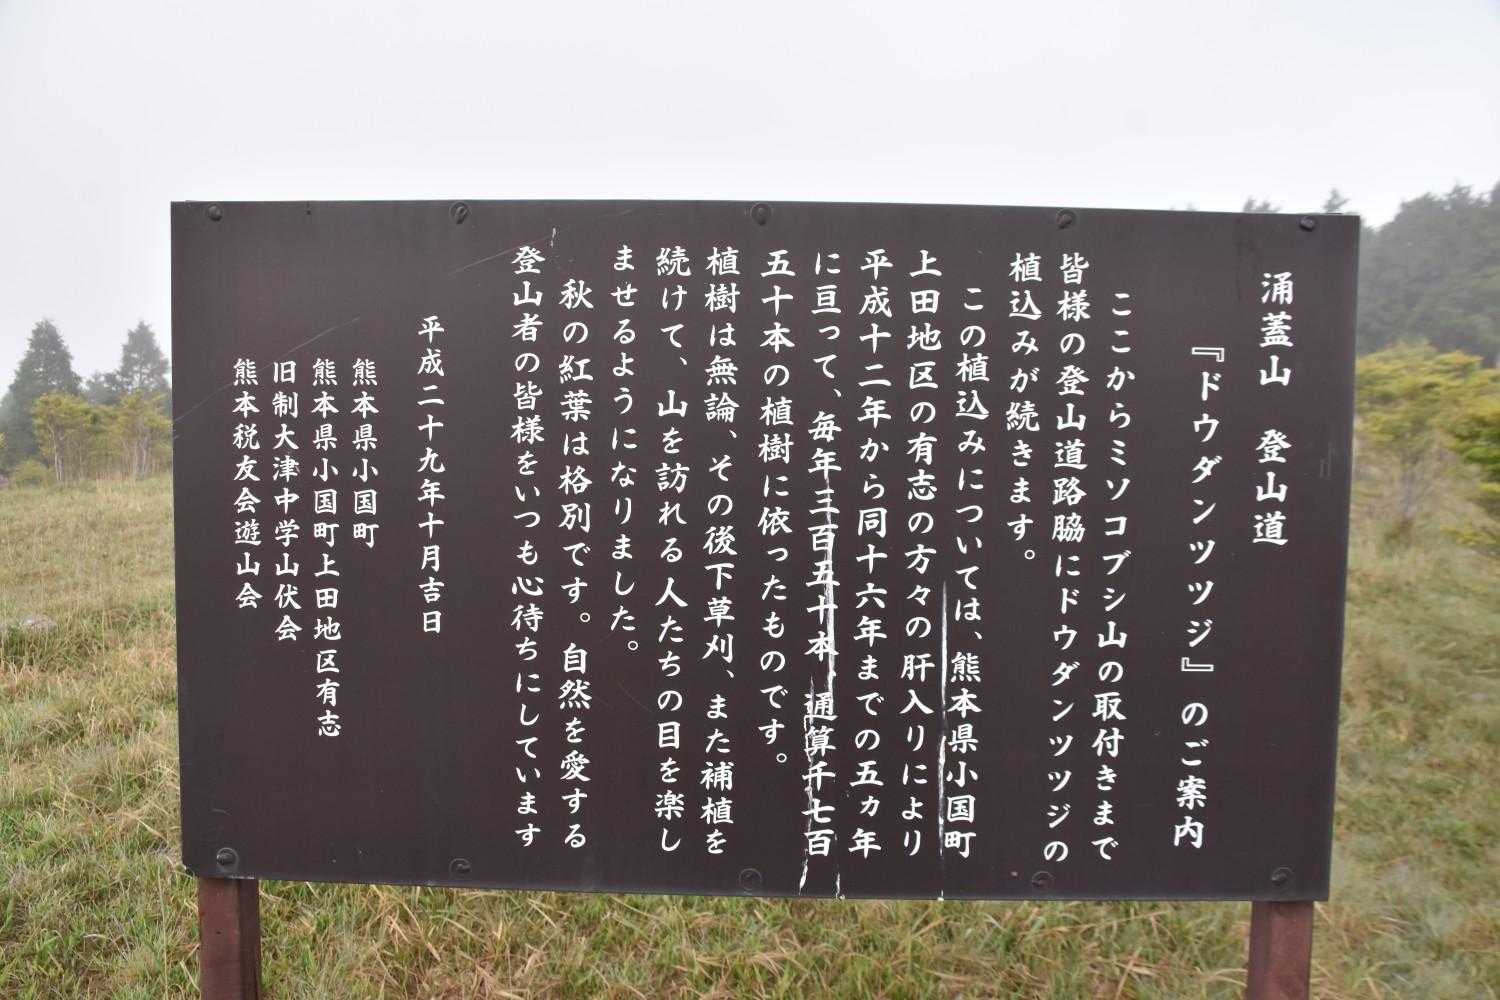 涌蓋山　登山道
『ドウダンツツジ』のご案内
ここからミソコブシ山の取付きまで
皆様の登山道路脇にドウダンツツジの
植込みが続きます。
この植込みについては、熊本県小国町
上田地区の有志の方々の肝入りにより
平成十二年から同十六年までの五ヵ年
に亘って、毎年三百五十本、通算千七百
五十本の植樹に依ったものです。
植樹は無論、その後下草刈、また補植を
続けて、山を訪れる人たちの目を楽し
ませるようになりました。
秋の紅葉は格別です。自然を愛する
登山者の皆様をいつも心待ちにしています
平成二十九年十月吉日
熊本県小国町
熊本県小国町上田地区有志
旧制大津中学山伏会
熊本税友会遊山会